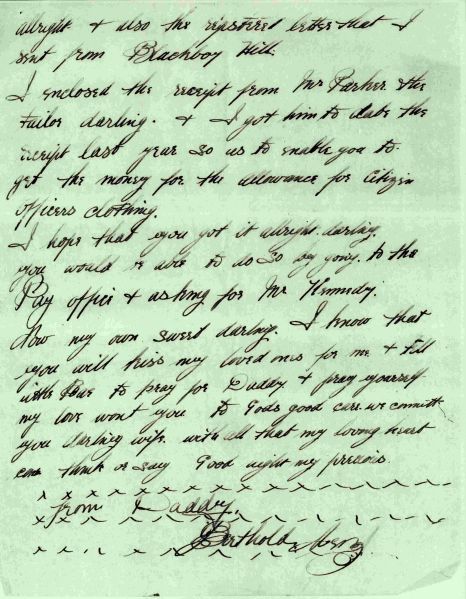 allright & also the registered letter that I
sent from Blackboy Hill.
I enclosed the receipt from Mr Parker & the
Tailor darling. & I got him to date the
receipt last year so as to enable you to
get the money for the allowance for Citizen
officers clothing.
I hope that you got it alright darling,
you would be able to do so by going to the
Pay office & asking for Mr Kennedy.
Now my own sweet darling, I know that
you will kiss my loved ones for me & tell
little to pray for Daddy & pray yourself
my love wont you to Gods good care we commit
you darling wife with all that my loving heart
can think or say Good night my precious
x x x x x x x x x x x x
from Daddy.
x x x x x x x x x x
Berthold